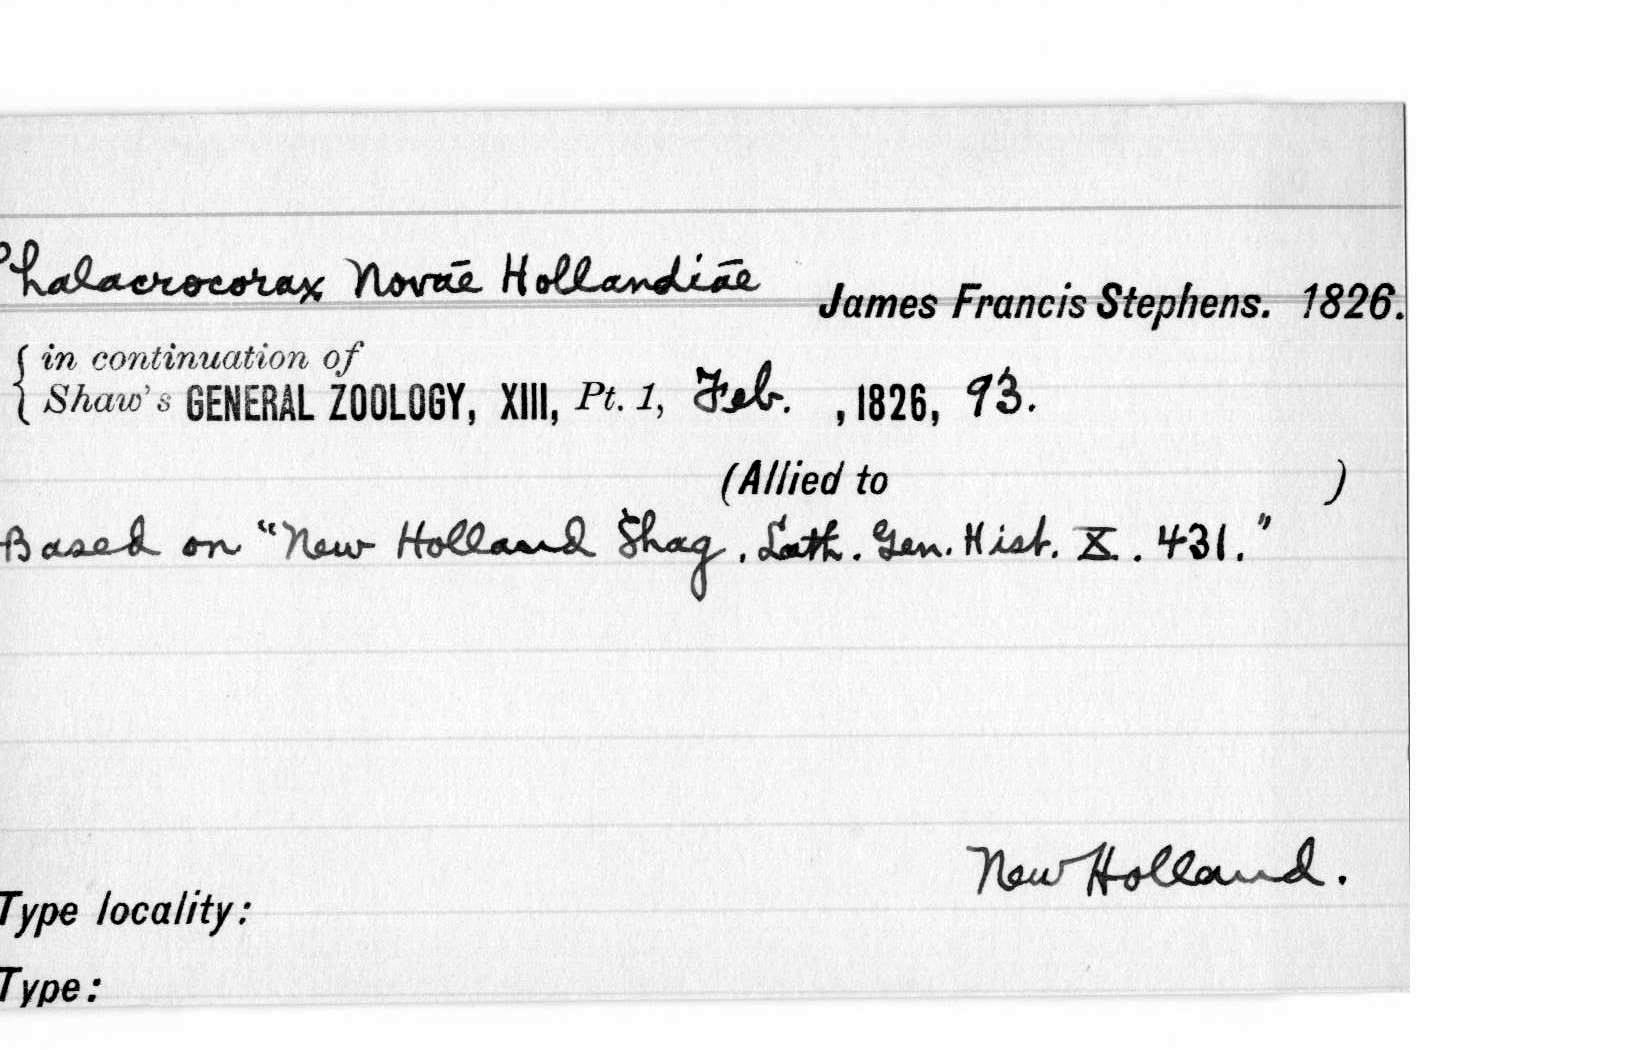 Phalacrocorax Novae Hollandiae James Francis Stephens. 1826.
{ in continuation of
Shaw's GENERAL ZOOLOGY, XIII, Pt. 1, Feb. , 1826, 93.
(Allied to )
Based on "New Holland Shag, Lath. Gen. Hist. X. 431."
New Holland.
Type locality:
Type: